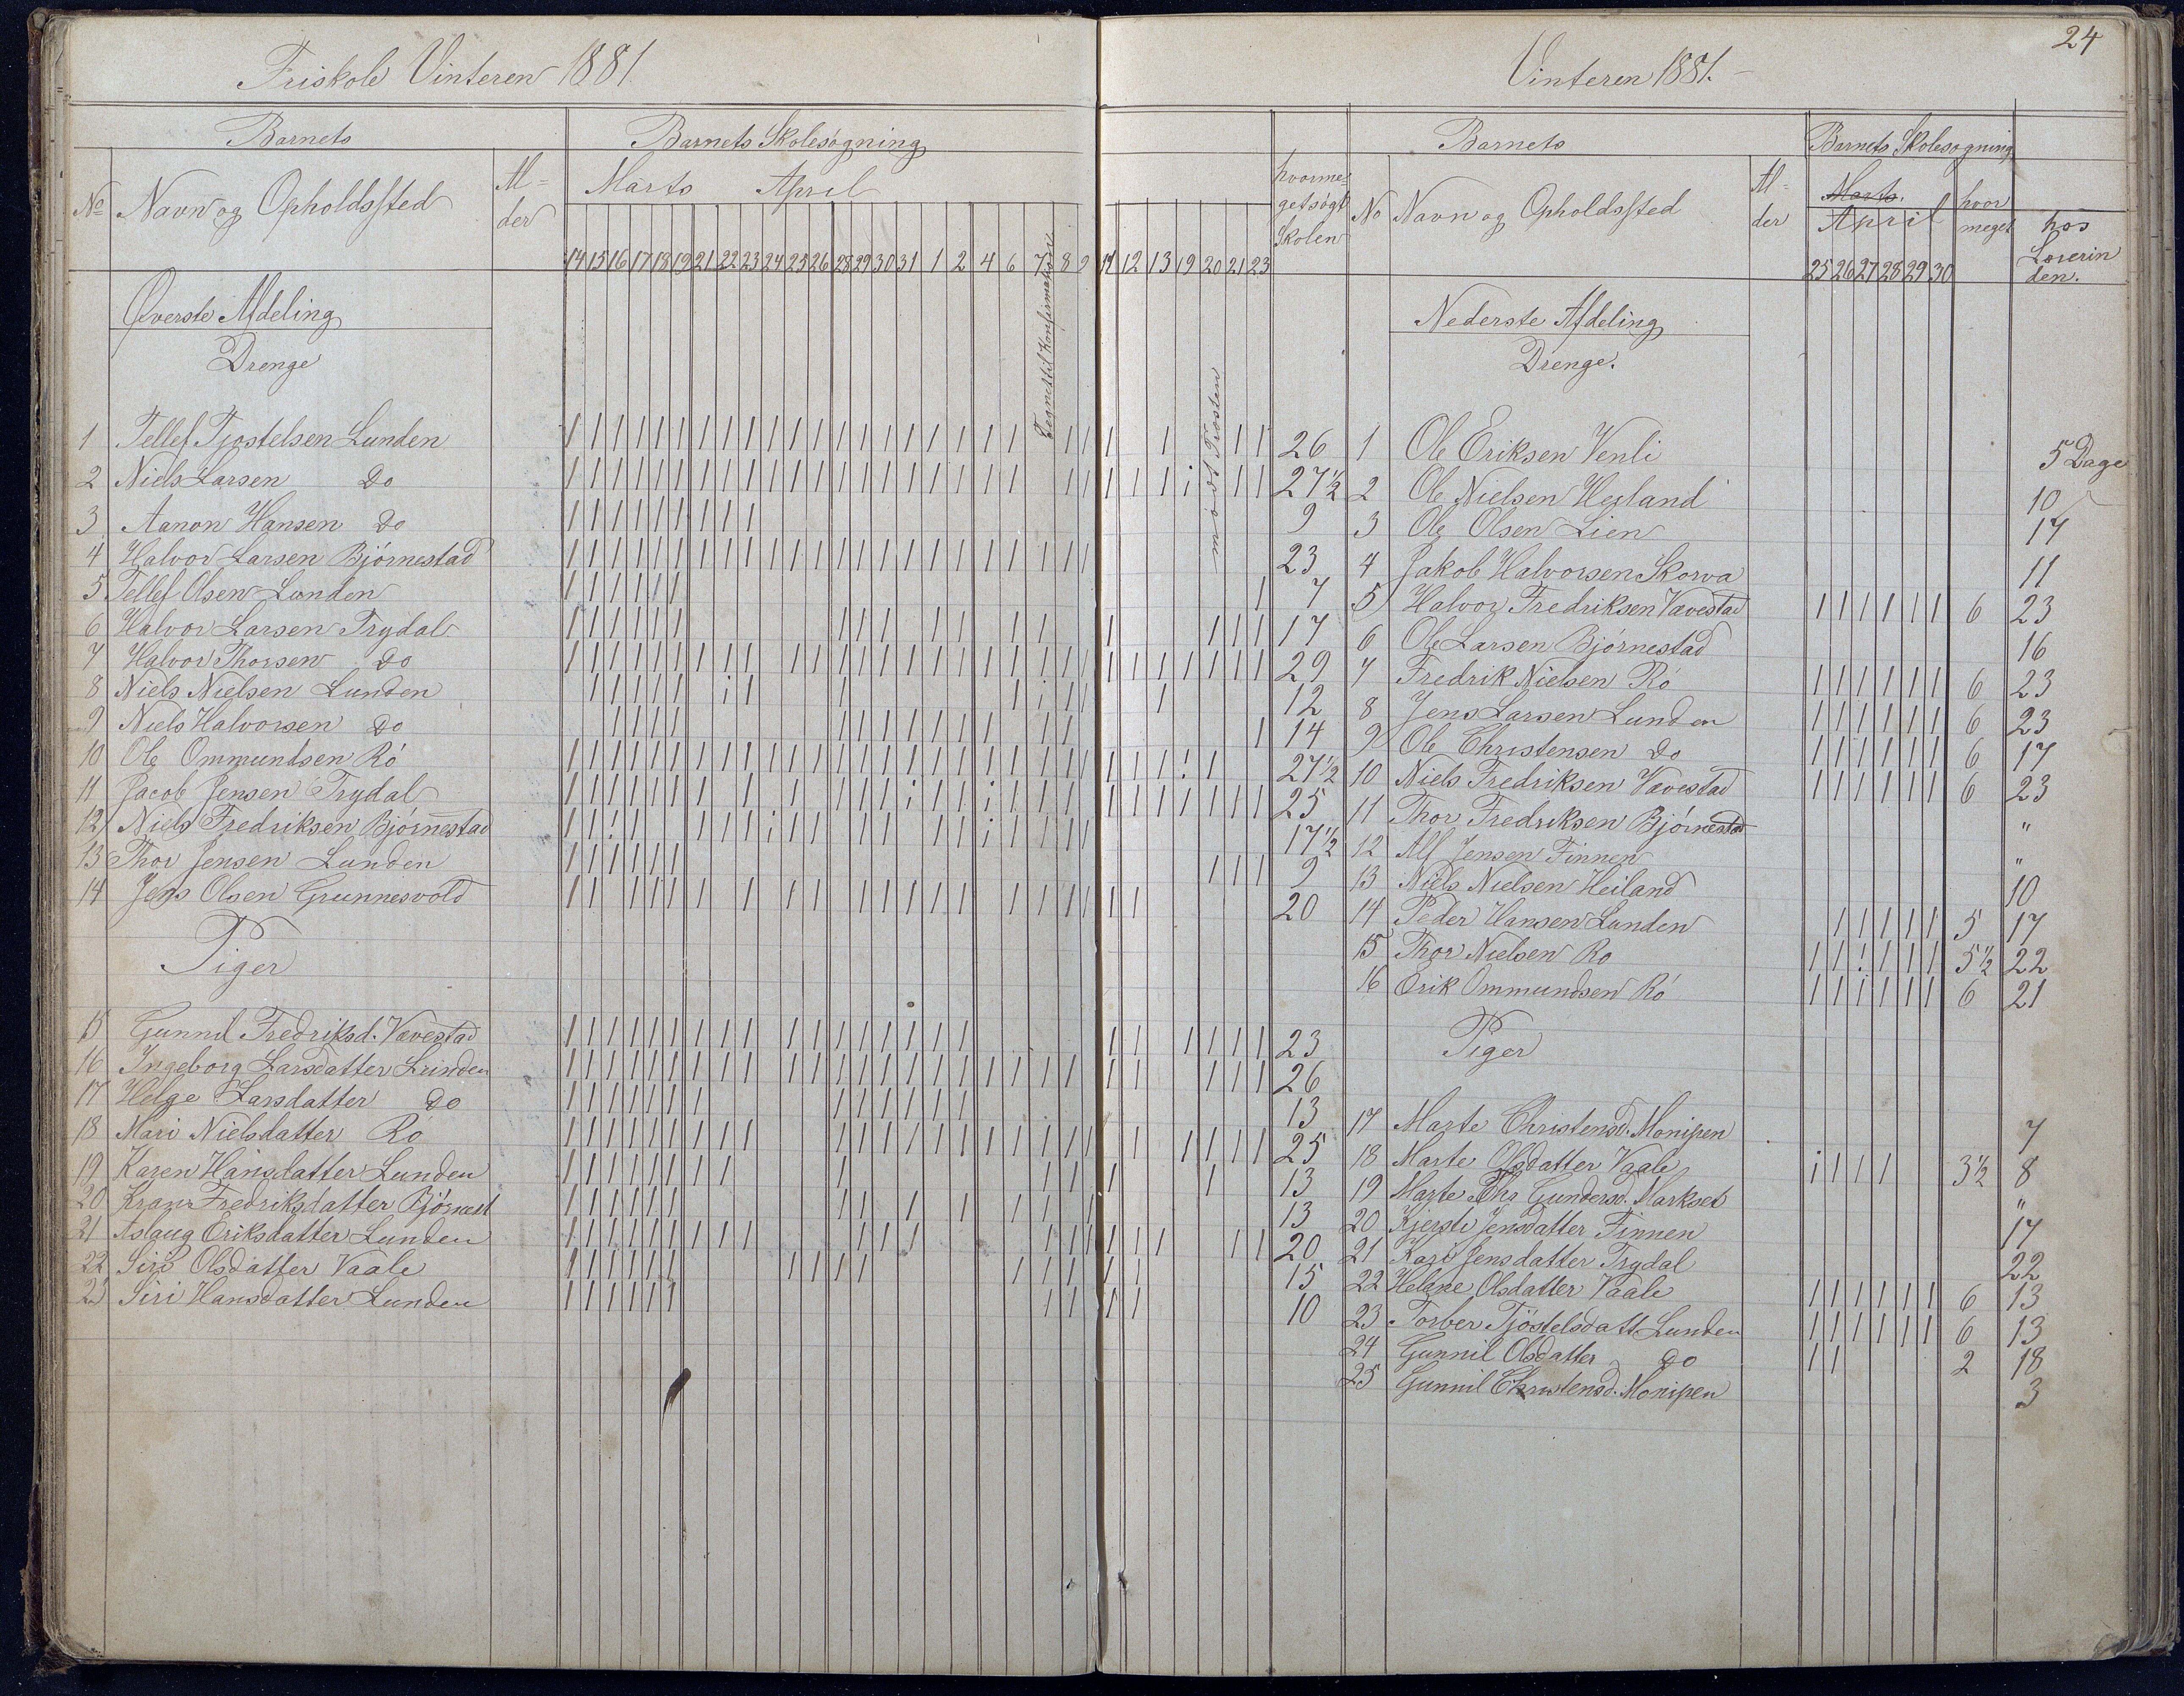 24
Friskole Vinteren 1881.
Barnets
Barnets Skolesøgning
No Navn og Opholdssted
Al=
der
Marts April
14 15 16 17 18 19 21 22 23 24 25 26 28 29 30 31 1 2 4 6 7 8 9
Øverste Afdeling
Drenge
Tegnestil Konfirmation
1 Tellef Tjostelsen Lunden
2 Niels Larsen Do
3 Aanon Hansen Do
4 Halvor Larsen Bjørnestad
5 Tellef Olsen Lunden
6 Halvor Larsen Trydal
7 Halvor Thorsen Do
8 Niels Nielsen Lunden
9 Niels Halvorsen Do
10 Ole Ommundsen Ró
11 Jacob Jensen Trydal
12 Niels Fredriksen Bjørnestad
13 Thor Jensen Lunden
14 Jens Olsen Grunnesvold
Piger
15 Gunnil Fredriksd. Vævestad
16 Ingeborg Larsdatter Lunden
17 Helge Larsdatter Do
18 Mari Nielsdatter Ro
19 Karen Hansdatter Lunden
20 Fredriksdatter Bjørnest
21 Aslaug Eriksdatter Lunden
22 Siri Olsdatter Vaale
23 Siri Hansdatter Lunden
Vinteren 1881.
hvorme=
get søgt
Skolen
11 12 13 19 20 21 23
mødt Prosten
26
27 1/2
9
23
7
17
29
12
14
27 1/2
25
17 1/2
9
20
23
26
13
25
13
13
20
15
10
Barnets
Barnets Skolesøgning
No Navn og Opholdssted
Al=
der
Marts.
April
hvor
meget
hos
Lærerin
den.
25 26 27 28 29 30
Nederste Afdeling
Drenge.
1 Ole Eriksen Venli 5 Dage
2 Ole Nielsen Hegland 10
3 Ole Olsen Lien 17
4 Jakob Halvorsen Skorva 11
5 Halvor Fredriksen Vævestad 6 23
6 Ole Larsen Bjørnestad 16
7 Fredrik Nielsen Ró 6 23
8 Jens Larsen Lunden 6 23
9 Ole Christensen Do 6 17
10 Niels Fredriksen Vævestad 6 23
11 Thor Fredriksen Bjørnestad "
12 Alf Jensen Finnen "
13 Niels Nielsen Heiland 10
14 Peder Hansen Lunden 5 17
15 Thor Nielsen Ro 5 1/2 22
16 Erik Ommundsen Ró 6 21
Piger
17 Marte Christensd. Monipen 7
18 Marte Olsdatter Vaale 3 1/2 8
19 Marte Gundersd. Markset "
20 Kjersti Jensdatter Finnen 17
21 Kari Jensdatter Trydal 22
22 Helene Olsdatter Vaale 6 13
23 Torber Tjöstelsdatt Lunden 6 13
24 Gunnil Olsdatter Do 2 18
25 Gunnil Christensd. Monipen 3